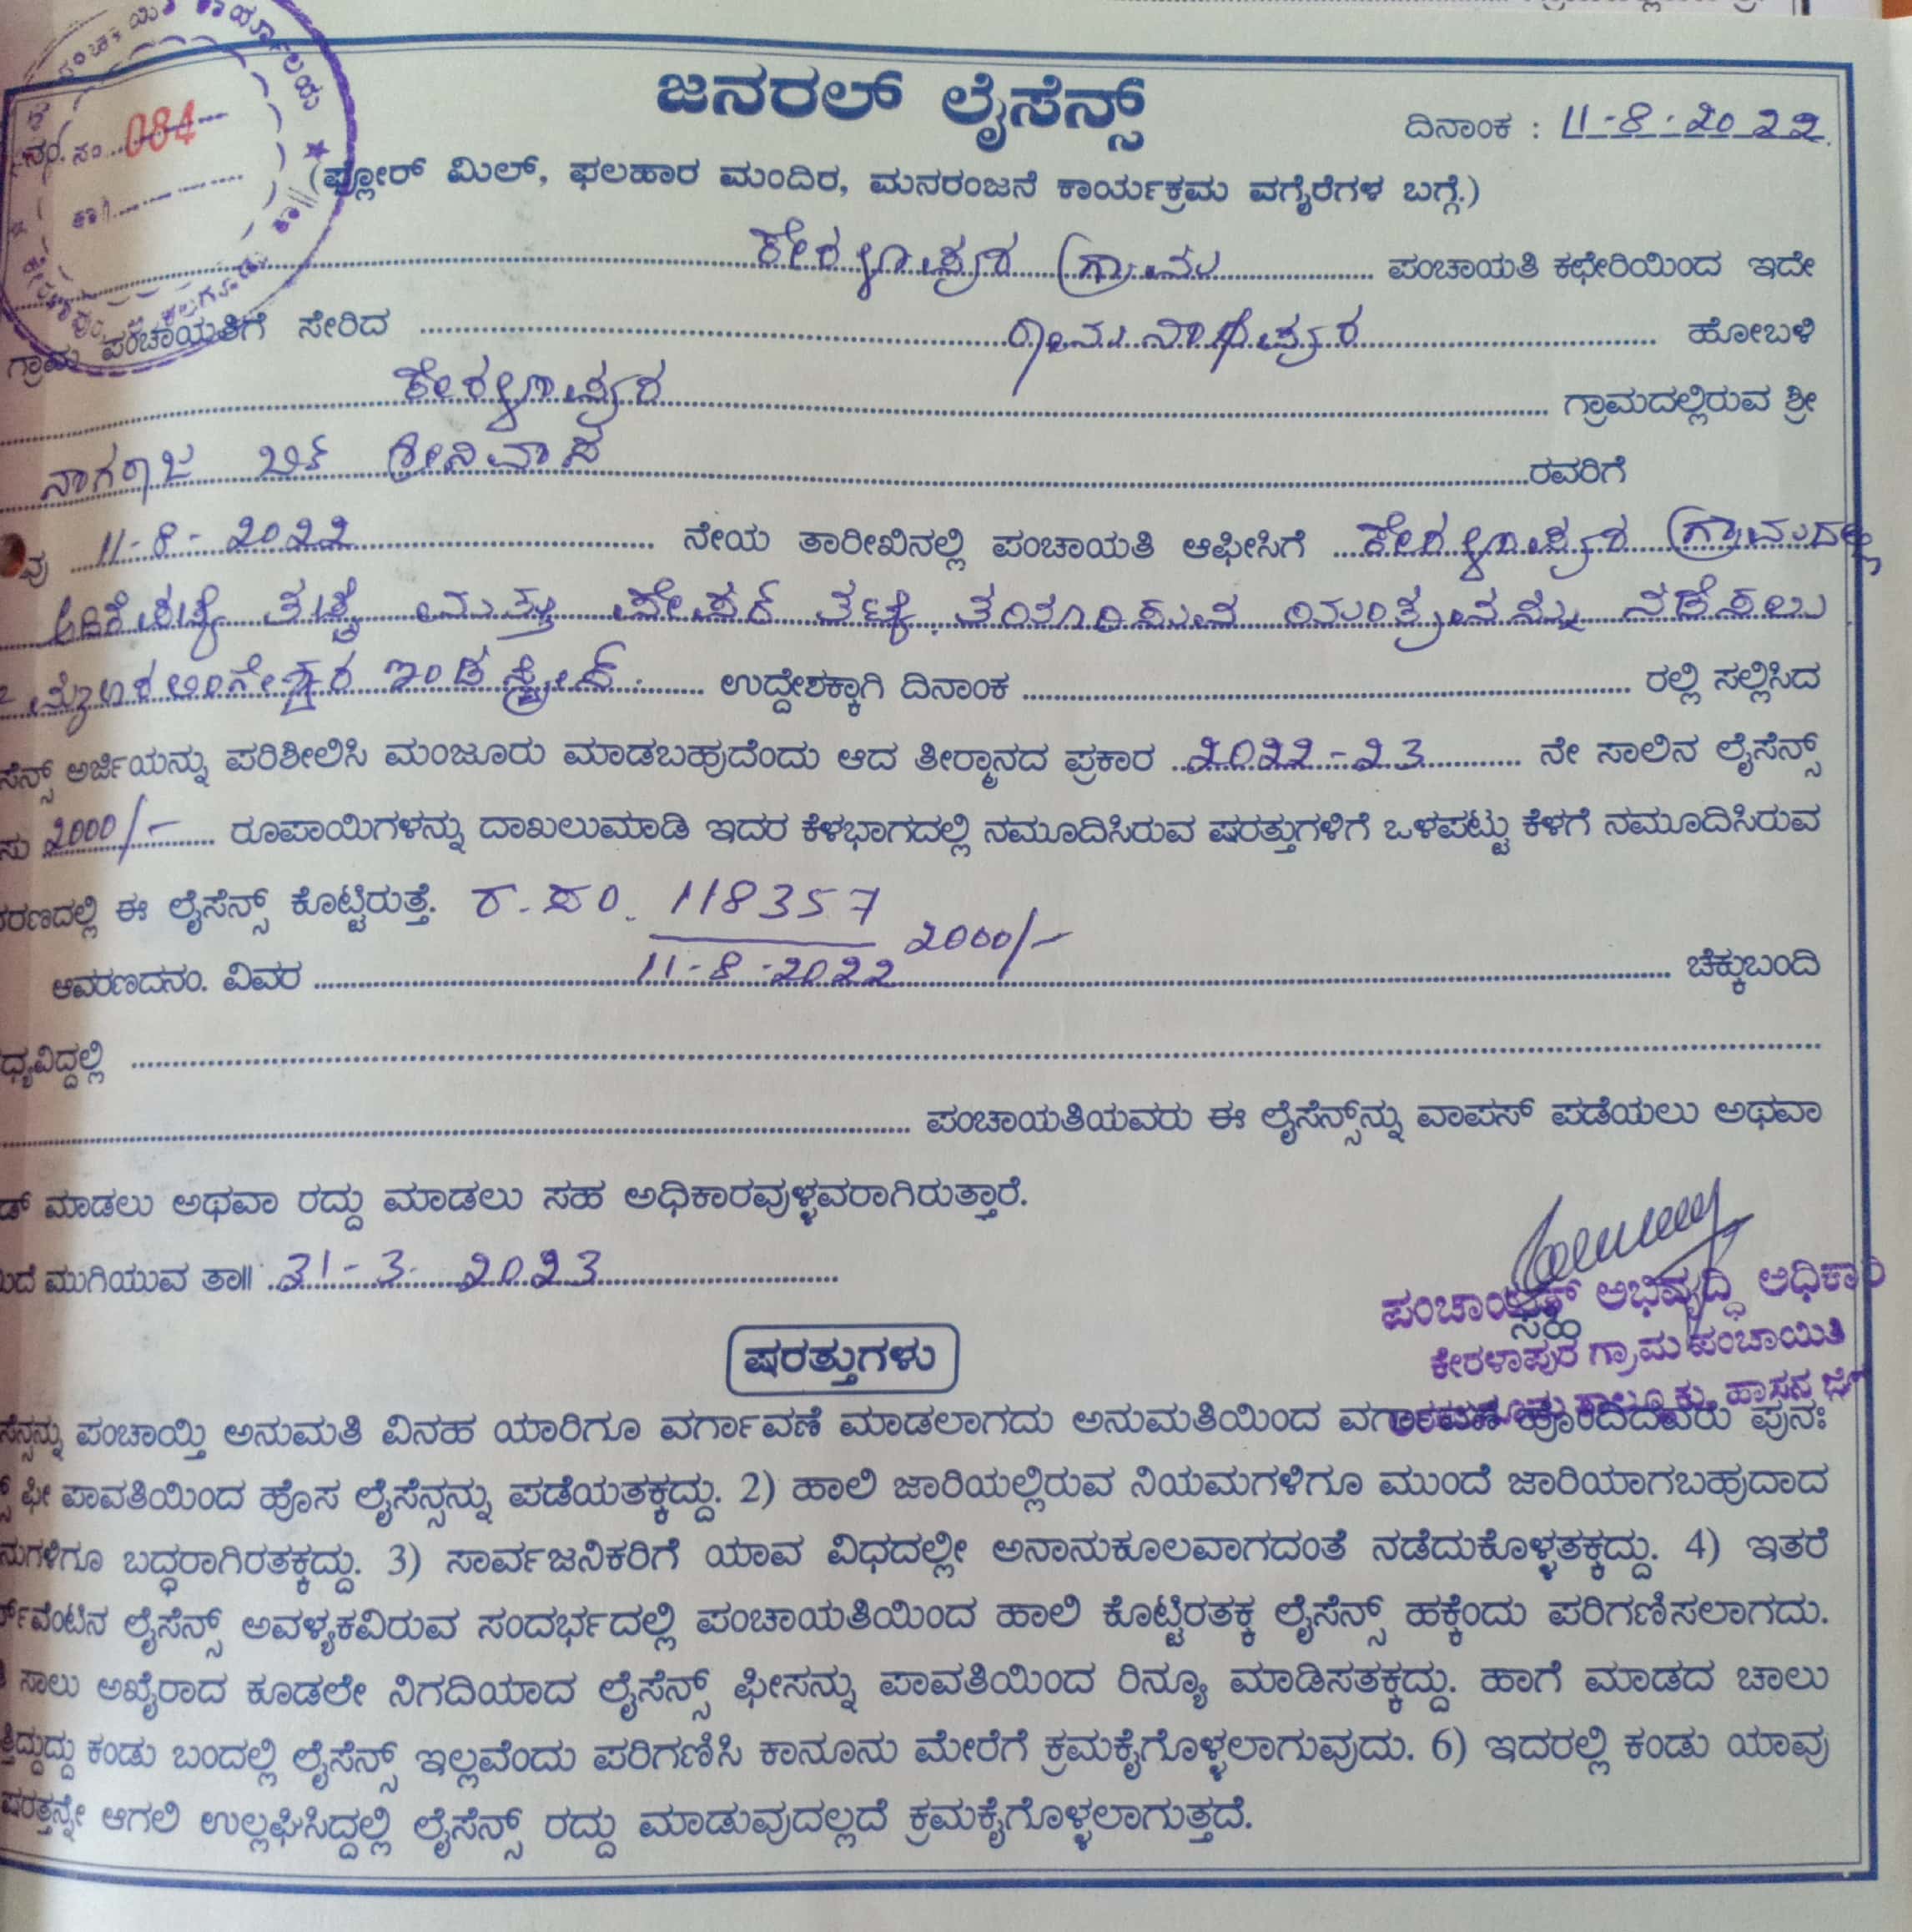 ಜನರಲ್ ಲೈಸೆನ್ಸ್
ದಿನಾಂಕ : 11-8-2022
ನಂ. 084
(ಫ್ಲೋರ್ ಮಿಲ್, ಫಲಹಾರ ಮಂದಿರ, ಮನರಂಜನೆ ಕಾರ್ಯಕ್ರಮ ವಗೈರೆಗಳ ಬಗ್ಗೆ.)
ಕೇರಳಾಪುರ ಗ್ರಾಮ ಪಂಚಾಯತಿ ಕಛೇರಿಯಿಂದ ಇದೇ
ಗ್ರಾಮ ಪಂಚಾಯತಿಗೆ ಸೇರಿದ ರಾಮನಾಥಪುರ ಹೋಬಳಿ
ಕೇರಳಾಪುರ ಗ್ರಾಮದಲ್ಲಿರುವ ಶ್ರೀ
ನಾಗರಾಜ ಬಿನ್ ಶ್ರೀನಿವಾಸ ರವರಿಗೆ
ವು 11-8-2022 ನೇಯ ತಾರೀಖಿನಲ್ಲಿ ಪಂಚಾಯತಿ ಆಫೀಸಿಗೆ ಕೇರಳಾಪುರ ಗ್ರಾಮದಲ್ಲಿ
ಅಡಿಕೆ ತಟ್ಟೆ ಮತ್ತು ಪೇಪರ್ ತಟ್ಟೆ ತಯಾರಿಸುವ ಯಂತ್ರವನ್ನು ನಡೆಸಲು
ಇಂಡಸ್ಟ್ರೀಸ್. ಉದ್ದೇಶಕ್ಕಾಗಿ ದಿನಾಂಕ ರಲ್ಲಿ ಸಲ್ಲಿಸಿದ
ಸೆನ್ಸ್ ಅರ್ಜಿಯನ್ನು ಪರಿಶೀಲಿಸಿ ಮಂಜೂರು ಮಾಡಬಹುದೆಂದು ಆದ ತೀರ್ಮಾನದ ಪ್ರಕಾರ 2022-23 ನೇ ಸಾಲಿನ ಲೈಸೆನ್ಸ್
ಸು 2000/- ರೂಪಾಯಿಗಳನ್ನು ದಾಖಲುಮಾಡಿ ಇದರ ಕೆಳಭಾಗದಲ್ಲಿ ನಮೂದಿಸಿರುವ ಷರತ್ತುಗಳಿಗೆ ಒಳಪಟ್ಟು ಕೆಳಗೆ ನಮೂದಿಸಿರುವ
ವರಣದಲ್ಲಿ ಈ ಲೈಸೆನ್ಸ್ ಕೊಟ್ಟಿರುತ್ತೆ. ರ.ಸಂ. 118357
2000/-
ಆವರಣದನಂ. ವಿವರ 11-8-2022 ಚೆಕ್ಕುಬಂದಿ
ಧ್ಯವಿದ್ದಲ್ಲಿ
ಪಂಚಾಯತಿಯವರು ಈ ಲೈಸೆನ್ಸ್‌ನ್ನು ವಾಪಸ್ ಪಡೆಯಲು ಅಥವಾ
ಡ್ ಮಾಡಲು ಅಥವಾ ರದ್ದು ಮಾಡಲು ಸಹ ಅಧಿಕಾರವುಳ್ಳವರಾಗಿರುತ್ತಾರೆ.
ಮುಗಿಯುವ ತಾ॥ 31-3-2023
ಸಹಿ
ಪಂಚಾಯತ್ ಅಭಿವೃದ್ಧಿ ಅಧಿಕಾರಿ
ಕೇರಳಾಪುರ ಗ್ರಾಮ ಪಂಚಾಯಿತಿ
ತಾಲ್ಲೂಕು, ಹಾಸನ ಜಿ
ಷರತ್ತುಗಳು
ಸೆನ್ಸನ್ನು ಪಂಚಾಯ್ತಿ ಅನುಮತಿ ವಿನಹ ಯಾರಿಗೂ ವರ್ಗಾವಣೆ ಮಾಡಲಾಗದು ಅನುಮತಿಯಿಂದ ವರ್ಗಾವಣೆ ಹೊಂದಿದವರು ಪುನಃ
ಫೀ ಪಾವತಿಯಿಂದ ಹೊಸ ಲೈಸೆನ್ಸನ್ನು ಪಡೆಯತಕ್ಕದ್ದು. 2) ಹಾಲಿ ಜಾರಿಯಲ್ಲಿರುವ ನಿಯಮಗಳಿಗೂ ಮುಂದೆ ಜಾರಿಯಾಗಬಹುದಾದ
ನುಗಳಿಗೂ ಬದ್ಧರಾಗಿರತಕ್ಕದ್ದು. 3) ಸಾರ್ವಜನಿಕರಿಗೆ ಯಾವ ವಿಧದಲ್ಲೀ ಅನಾನುಕೂಲವಾಗದಂತೆ ನಡೆದುಕೊಳ್ಳತಕ್ಕದ್ದು. 4) ಇತರೆ
ರ್ಟ್‌ಮೆಂಟಿನ ಲೈಸೆನ್ಸ್ ಅವಳ್ಯಕವಿರುವ ಸಂದರ್ಭದಲ್ಲಿ ಪಂಚಾಯತಿಯಿಂದ ಹಾಲಿ ಕೊಟ್ಟಿರತಕ್ಕ ಲೈಸೆನ್ಸ್ ಹಕ್ಕೆಂದು ಪರಿಗಣಿಸಲಾಗದು.
ಸಾಲು ಅಖೈರಾದ ಕೂಡಲೇ ನಿಗದಿಯಾದ ಲೈಸೆನ್ಸ್ ಫೀಸನ್ನು ಪಾವತಿಯಿಂದ ರಿನ್ಯೂ ಮಾಡಿಸತಕ್ಕದ್ದು. ಹಾಗೆ ಮಾಡದ ಚಾಲು
ತ್ತಿದ್ದುದ್ದು ಕಂಡು ಬಂದಲ್ಲಿ ಲೈಸೆನ್ಸ್ ಇಲ್ಲವೆಂದು ಪರಿಗಣಿಸಿ ಕಾನೂನು ಮೇರೆಗೆ ಕ್ರಮಕೈಗೊಳ್ಳಲಾಗುವುದು. 6) ಇದರಲ್ಲಿ ಕಂಡು ಯಾವು
ಷರತ್ತನ್ನೇ ಆಗಲಿ ಉಲ್ಲಘಿಸಿದ್ದಲ್ಲಿ ಲೈಸೆನ್ಸ್ ರದ್ದು ಮಾಡುವುದಲ್ಲದೆ ಕ್ರಮಕೈಗೊಳ್ಳಲಾಗುತ್ತದೆ.